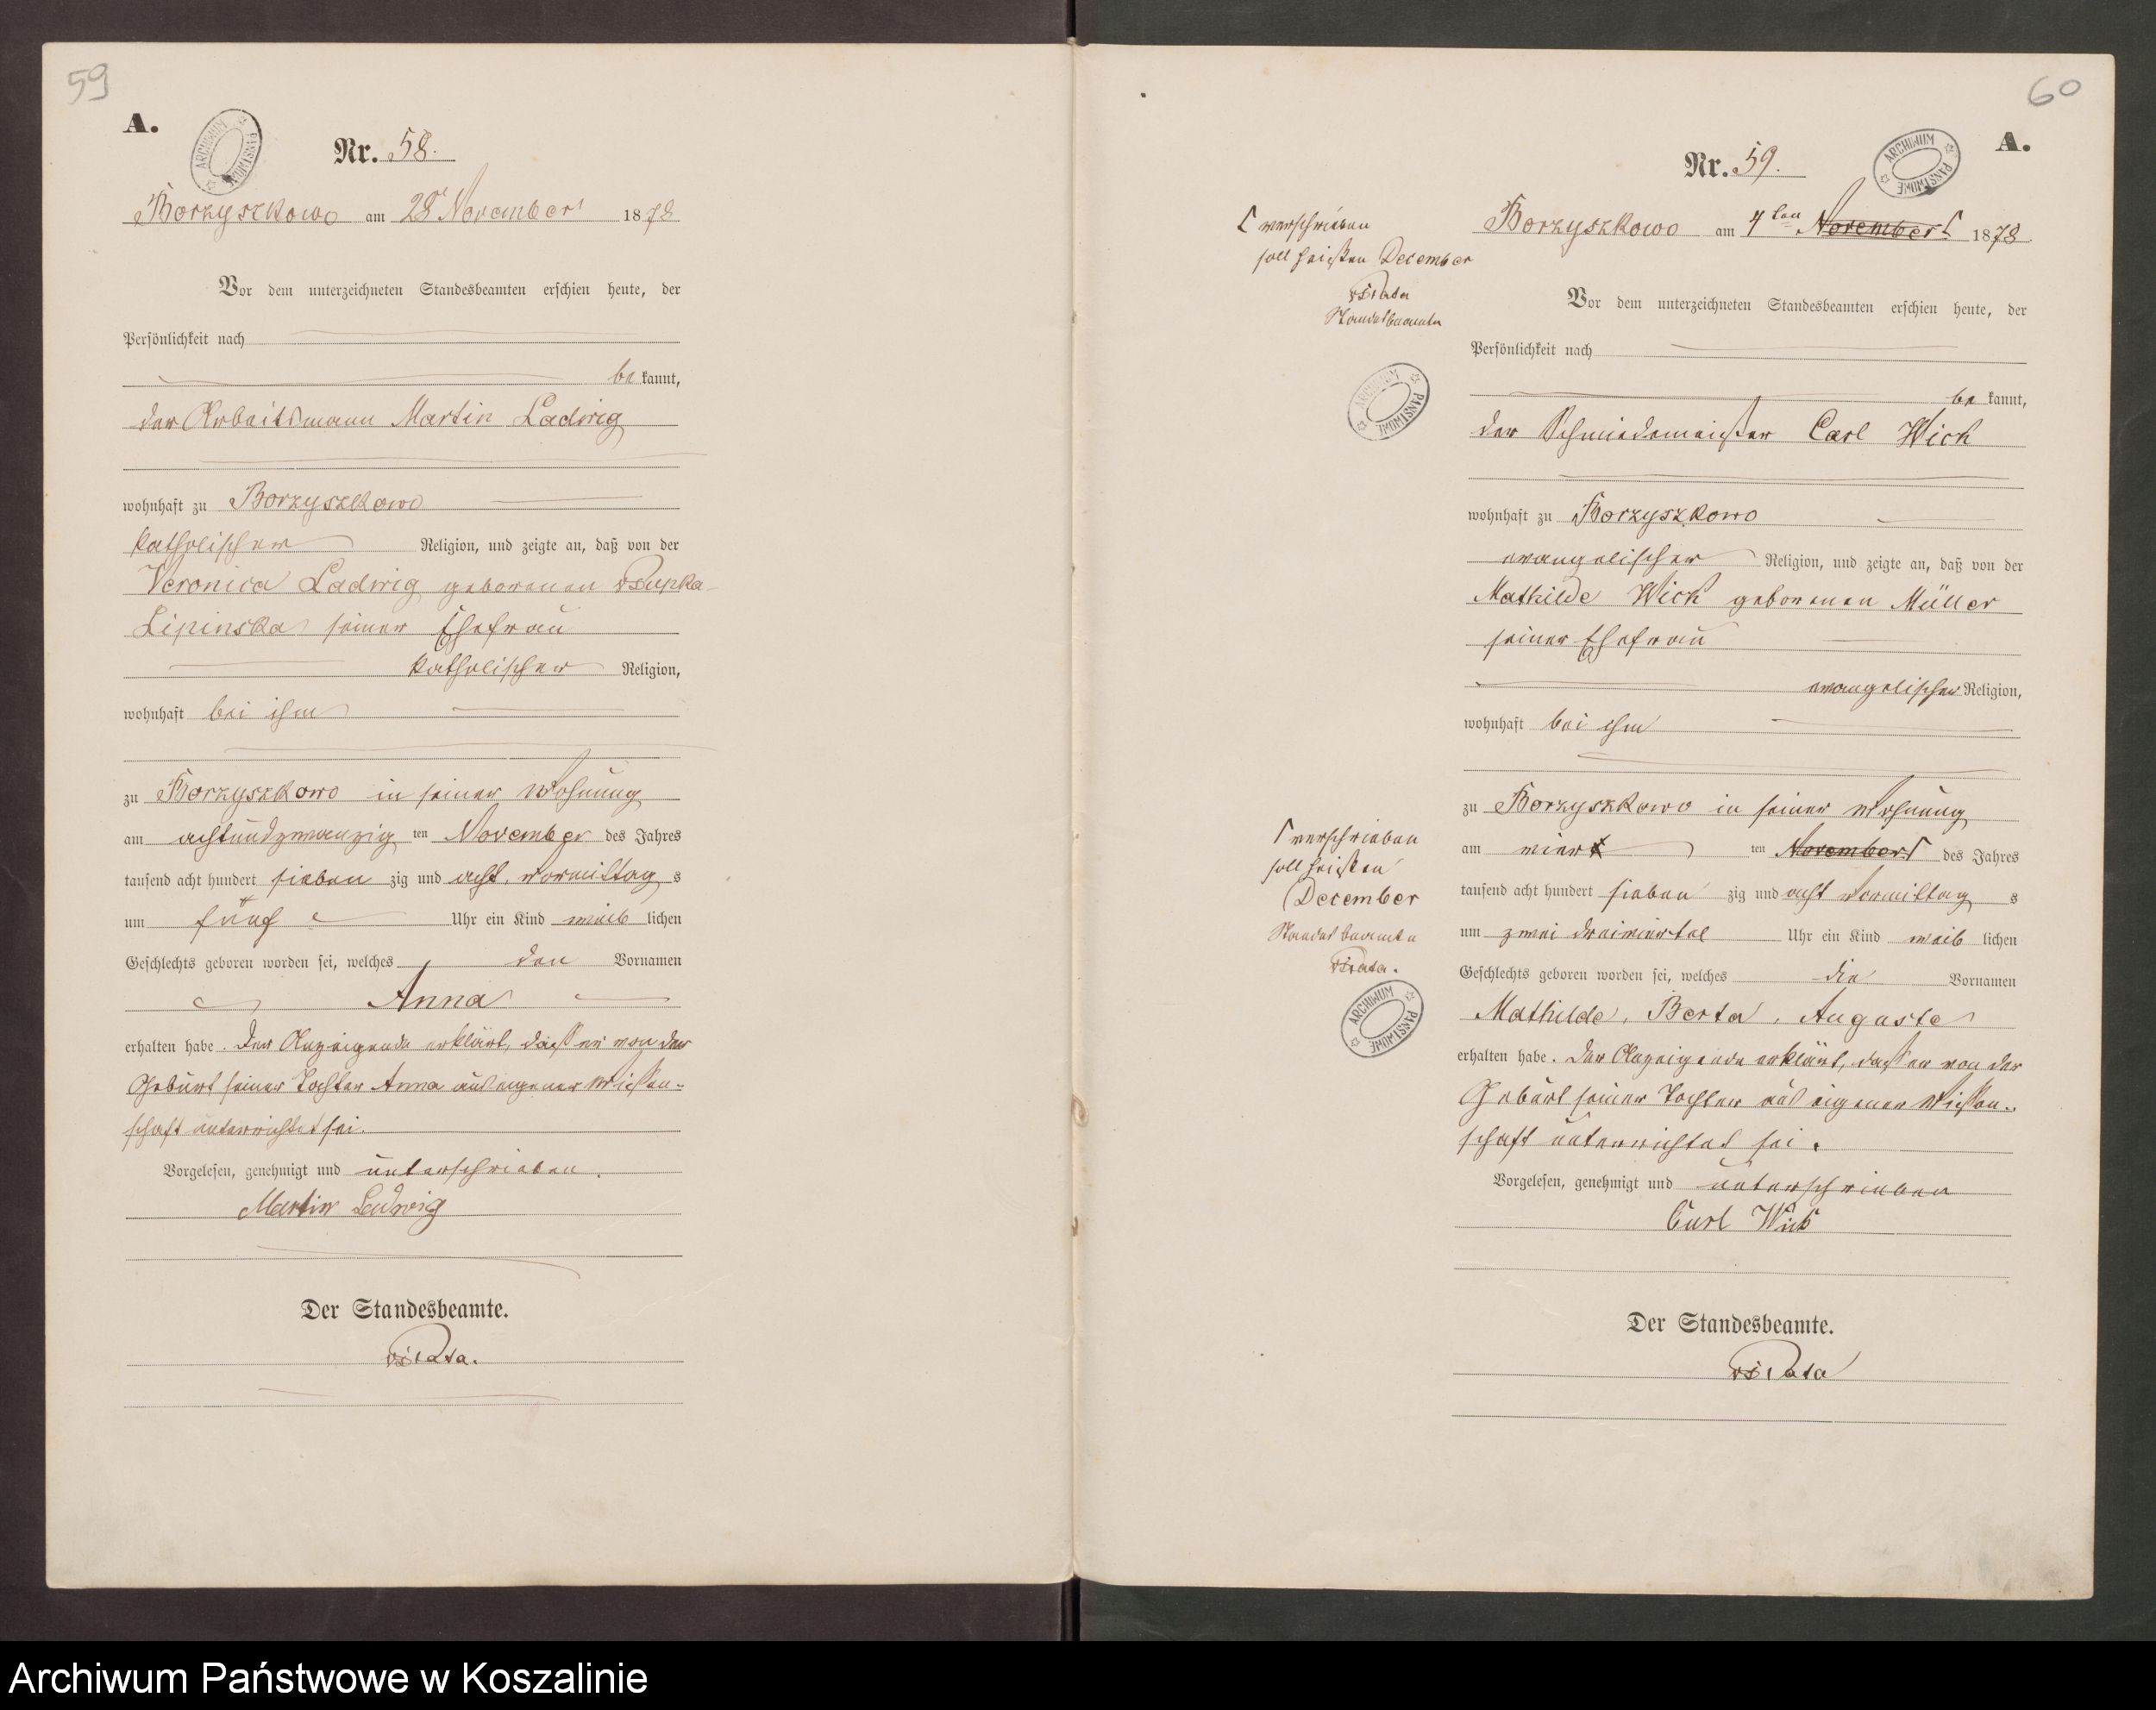 59
A.
ARCHIWUM PAŃSTWOWE
Nr. 58.
Borzyszkowo am 28t November 1878
Vor dem unterzeichneten Standesbeamten erschien heute, der
Persönlichkeit nach
be kannt,
der Arbeitsmann Martin Ladwig
wohnhaft zu Borzyszkowo
katholischer Religion, und zeigte an, daß von der
Veronica Ladwig geborenen
Lipinska seiner Ehefrau
katholischer Religion,
wohnhaft bei ihm
zu Borzyszkowo in seiner Wohnung
am achtundzwanzig ten November des Jahres
tausend acht hundert sieben zig und acht, vormittag s
um fünf Uhr ein Kind weib lichen
Geschlechts geboren worden sei, welches den Vornamen
Anna
erhalten habe. Der Anzeigende erklärt, daß er von der
Geburt seiner Tochter Anna aus eigener Wissen-
schaft unterrichtet sei.
Vorgelesen, genehmigt und unterschrieben.
Martin Ladwig
Der Standesbeamte.
60
A.
ARCHIWUM PAŃSTWOWE
Nr. 59.
Borzyszkowo am 4ten November 1878
verschrieben
soll heißen December
Standesbeamte
ARCHIWUM PAŃSTWOWE
Vor dem unterzeichneten Standesbeamten erschien heute, der
Persönlichkeit nach
be kannt,
der Schmiedemeister Carl Wick
wohnhaft zu Borzyszkowo
evangelischer Religion, und zeigte an, daß von der
Mathilde Wick geborenen Müller
seiner Ehefrau
evangelischer Religion,
wohnhaft bei ihm
zu Borzyszkowo in seiner Wohnung
am vier ten November des Jahres
verschrieben
soll heißen
December
Standesbeamte
ARCHIWUM PAŃSTWOWE
tausend acht hundert sieben zig und acht vormittag s
um zwei dreiviertel Uhr ein Kind weib lichen
Geschlechts geboren worden sei, welches die Vornamen
Mathilde, Berta, Auguste
erhalten habe. Der Anzeigende erklärt, daß er von der
Geburt seiner Tochter aus eigener Wissen-
schaft unterrichtet sei.
Vorgelesen, genehmigt und unterschrieben
Carl Wick
Der Standesbeamte.
Archiwum Państwowe w Koszalinie